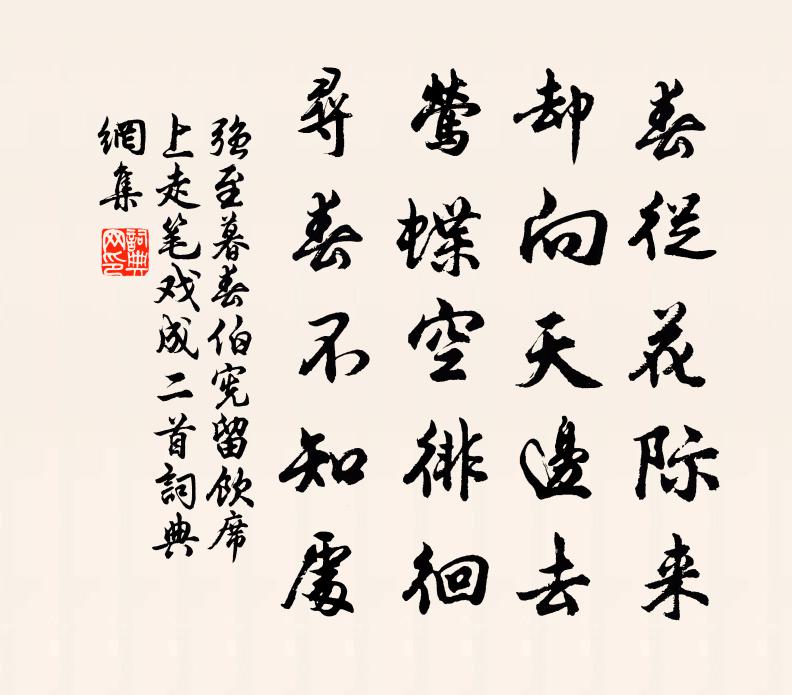 春從花际来
却向天邊去
鶯蝶空徘徊
尋春不知處
強至暮春伯宪留飲席
上走笔戏成二首詞典
網集
詞典
网印